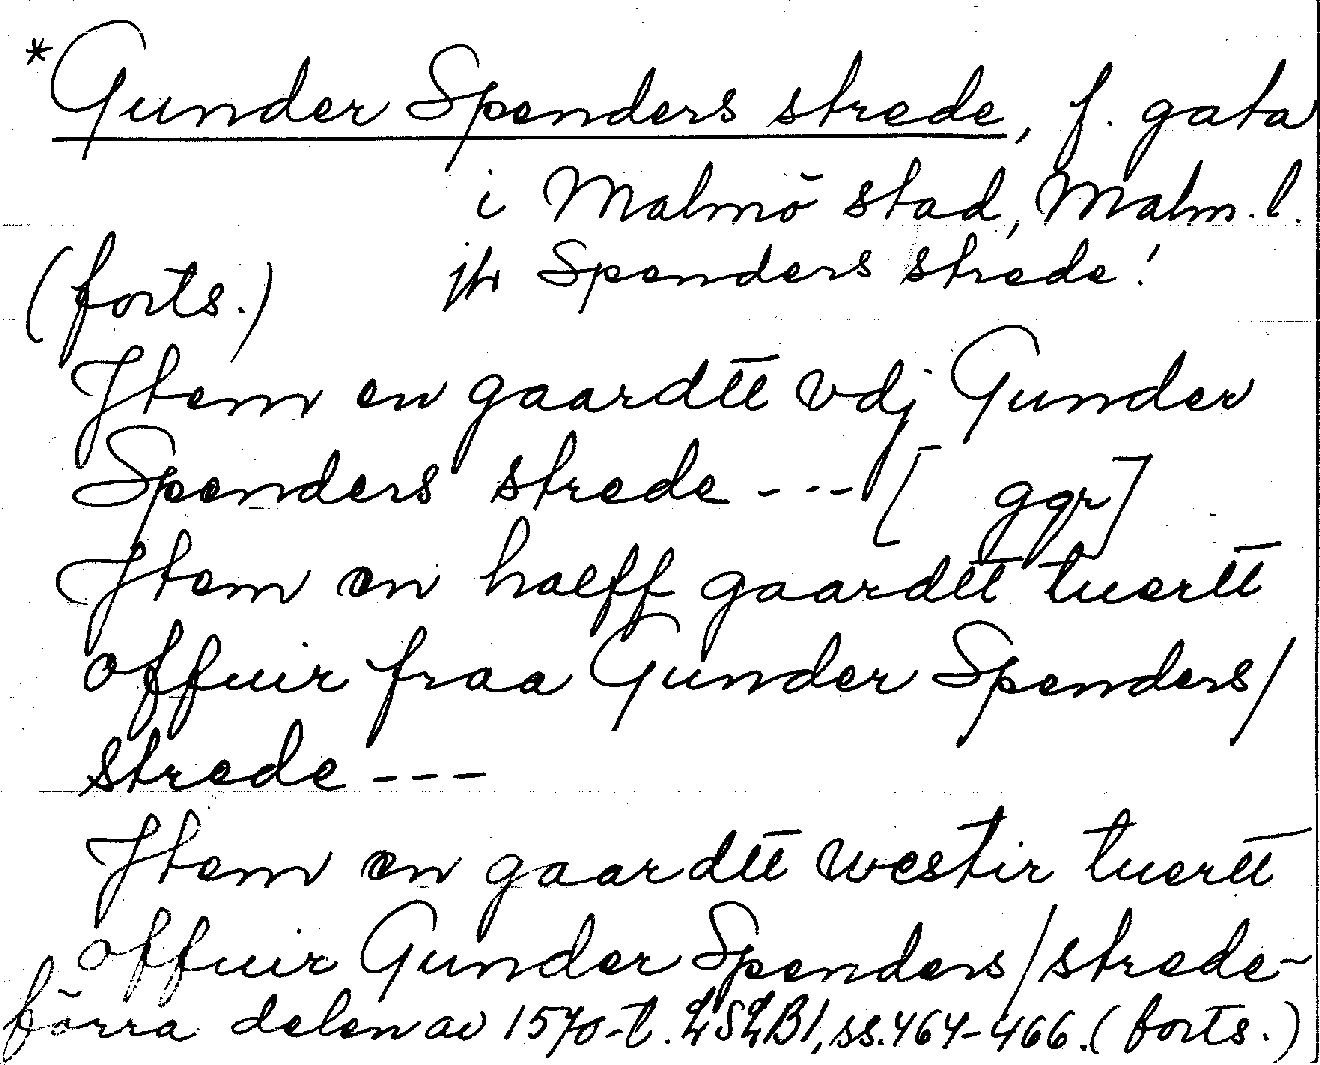 *Gunder Spenders strede, f. gata
i Malmö stad, Malm. l.
(forts.) jfr Spenders strede!
Jtem en gaardtt vdj Gunder
Spenders strede --- [ ggr]
Jtem en halff gaardtt tuertt
offuir fraa Gunder Spenders/
strede ---
Jtem en gaardtt westir tuertt
offuir Gunder Spenders/strede-
förra delen av 1570-t. LSLB1, ss. 464-466. (forts.)